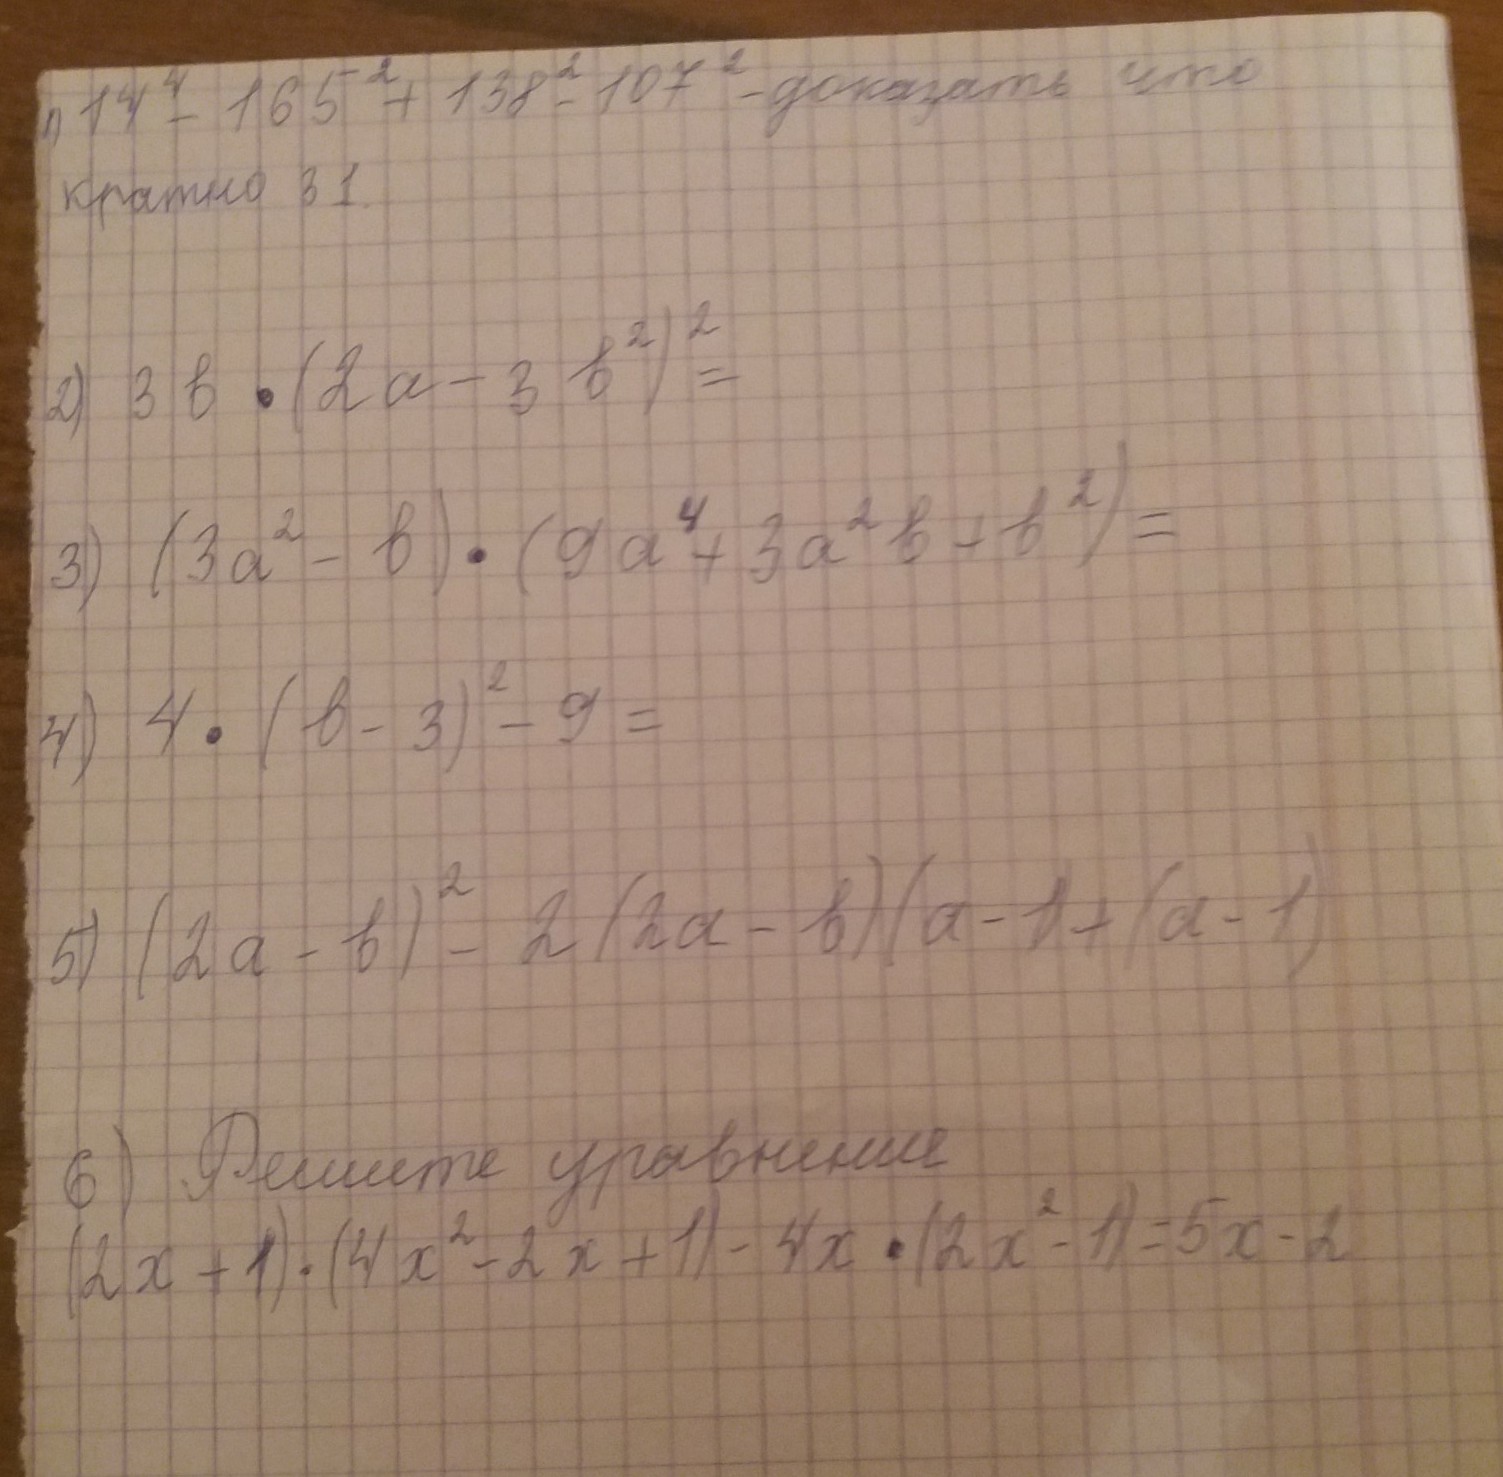 1) 14⁴ - 165² + 138² - 107² - доказать что
кратно 31.
2) 3b • (2a - 3b²)² =
3) (3a² - b) • (9a⁴ + 3a²b + b²) =
4) 4 • (b - 3)² - 9 =
5) (2a - b)² - 2(2a - b)(a - 1) + (a - 1)
6) Решите уравнение
(2x + 1) • (4x² - 2x + 1) - 4x • (2x² - 1) = 5x - 2